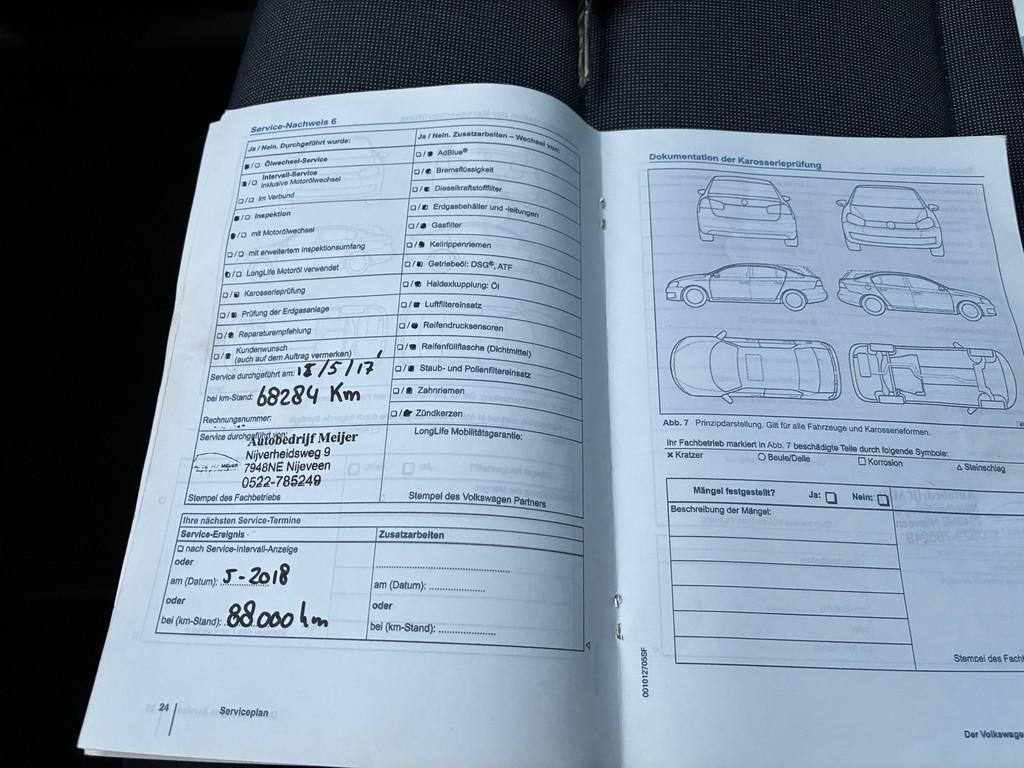 Service-Nachweis 6
Ja / Nein. Durchgeführt wurde:
Ölwechsel-Service
Intervall-Service
inklusive Motorölwechsel
im Verbund
Inspektion
mit Motorölwechsel
mit erweitertem Inspektionsumfang
LongLife Motoröl verwendet
Karosserieprüfung
Prüfung der Erdgasanlage
Reparaturempfehlung
Kundenwunsch
(auch auf dem Auftrag vermerken)
Service durchgeführt am: 18/5/17
bei km-Stand: 68284 Km
Rechnungsnummer:
Service durchgeführt von:
Autobedrijf Meijer
Nijverheidsweg 9
7948NE Nijeveen
0522-785249
Stempel des Fachbetriebs
Ja / Nein. Zusatzarbeiten – Wechsel von:
AdBlue®
Bremsflüssigkeit
Dieselkraftstofffilter
Erdgasbehälter und -leitungen
Gasfilter
Keilrippenriemen
Getriebeöl: DSG®, ATF
Haldexkupplung: Öl
Luftfiltereinsatz
Reifendrucksensoren
Reifenfüllflasche (Dichtmittel)
Staub- und Pollenfiltereinsatz
Zahnriemen
Zündkerzen
LongLife Mobilitätsgarantie:
Stempel des Volkswagen Partners
Ihre nächsten Service-Termine
Service-Ereignis
nach Service-Intervall-Anzeige
oder
am (Datum): 5-2018
oder
bei (km-Stand): 88.000 km
Zusatzarbeiten
am (Datum):
oder
bei (km-Stand):
24
Serviceplan
Dokumentation der Karosserieprüfung
Abb. 7 Prinzipdarstellung. Gilt für alle Fahrzeuge und Karosserieformen.
Ihr Fachbetrieb markiert in Abb. 7 beschädigte Teile durch folgende Symbole:
× Kratzer ○ Beule/Delle □ Korrosion △ Steinschlag
Mängel festgestellt? Ja: □ Nein: □
Beschreibung der Mängel:
Stempel des Fach
001012705SF
Der Volkswage